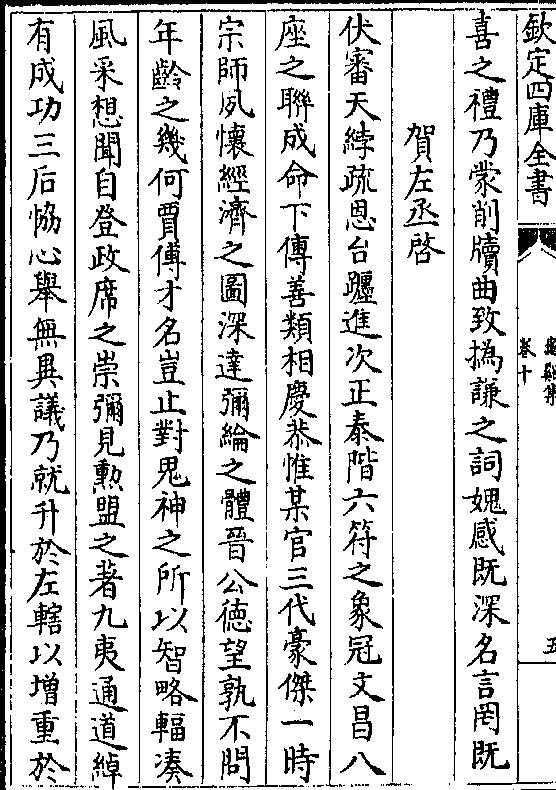 欽定四庫全書
卷十
五
喜之禮乃蒙削牘曲致撝謙之詞媿感既深名言罔既
賀左丞啓
伏審天綍疏恩台躔進次正泰階六符之象冠文昌八
座之聯成命下傳善類相慶恭惟某官三代豪傑一時
宗師夙懷經濟之圖深達彌綸之體晉公德望孰不問
年齡之幾何賈傅才名豈止對鬼神之所以智略輻凑
風采想聞自登政席之崇彌見勲盟之著九夷通道綽
有成功三后恊心舉無異議乃就升於左轄以增重於